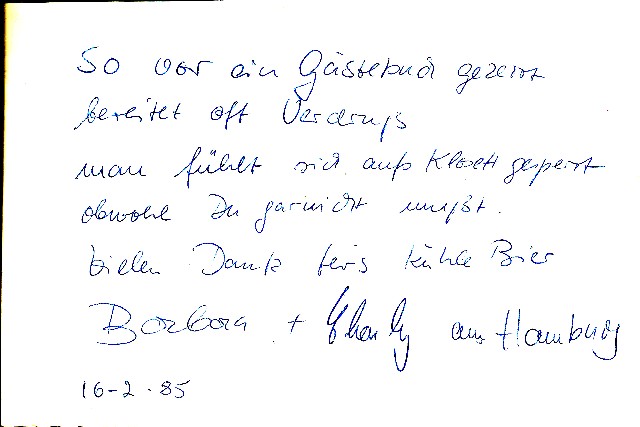 So vor ein Gästebuch gezerrt
bereitet oft Verdruß
man fühlt sich aufs Klosett gesperrt
obwohl Du garnicht mußt.
Vielen Dank fürs kühle Bier
Barbara + Charly aus Hamburg
16-2.85